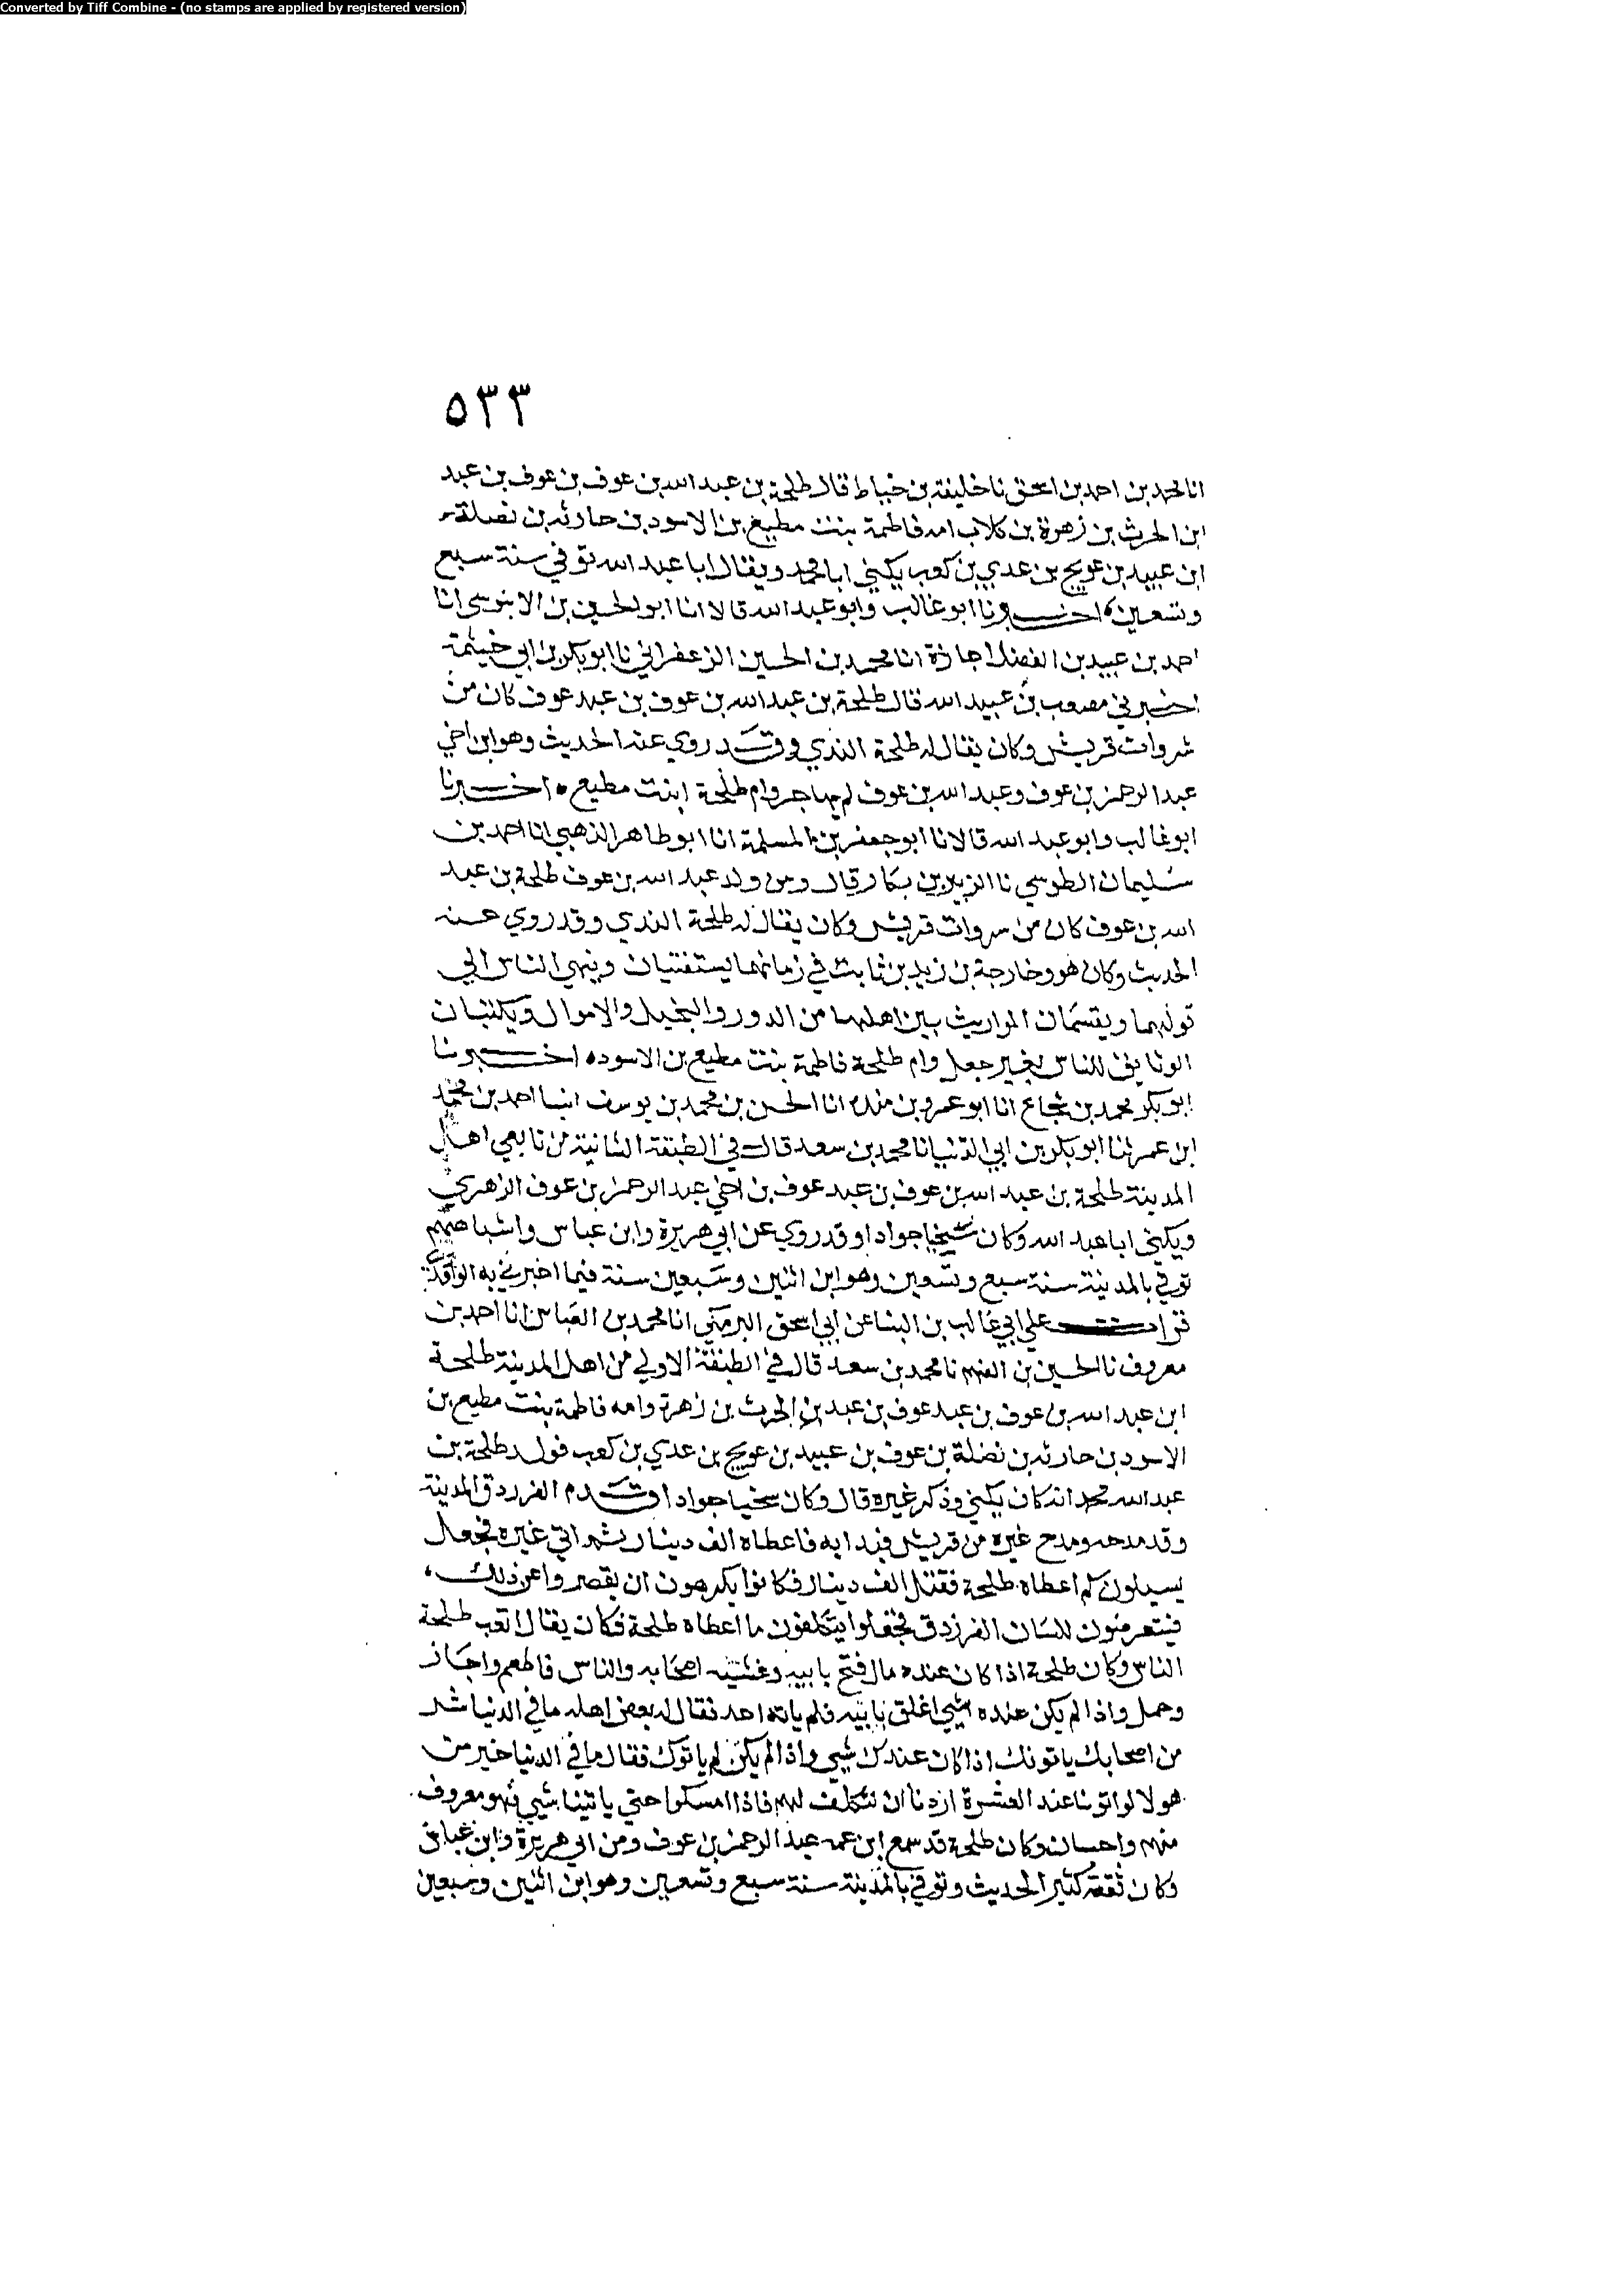 Converted by Tiff Combine - (no stamps are applied by registered version)
٥٣٣
انا محمد بن احمد بن اسحق نا خليفة بن خياط قال طلحة بن عبد الله بن عوف بن عوف بن عبد
ابن الحرث بن زهرة بن كلاب امه فاطمة بنت مطيع بن الاسود بن حارثه بن نضلة
ابن عبيد بن عويج بن عدي بن كعب يكني ابا محمد ويقال ابا عبد الله توفي سنة سبع
وتسعين اخبرنا ابو غالب وابو عبد الله قالا انا ابو الحسين بن الابنوسي انا
احمد بن عبيد بن الفضل اجازة انا محمد بن الحسين الزعفراني نا ابو بكر بن ابي خيثمة
اخبرني مصعب بن عبيد الله قال طلحة بن عبد الله بن عوف بن عبد عوف كان من
سروات قريش وكان يقال له طلحة الندي وقد روي عنه الحديث وهو ابن اخي
عبد الرحمن بن عوف وعبد الله بن عوف لم يهاجر وام طلحة ابنت مطيع ه اخبرنا
ابو غالب وابو عبد الله قالا نا ابو جعفر بن المسلمة انا ابو طاهر الذهبي انا احمد بن
سليمان الطوسي نا الزبير بن بكار قال ومن ولد عبد الله بن عوف طلحة بن عبد
الله بن عوف كان من سروات قريش وكان يقال له طلحة الندي وقد روي عنه
الحديث وكان هو وخارجة بن زيد بن ثابت في زمانهما يستفتيان وينهي الناس الي
قولهما ويقسمان المواريث بين اهلها من الدور والنخيل والاموال ويكتبان
الوثايق للناس بغير جعل وام طلحة فاطمة بنت مطيع بن الاسود ه اخبرنا
ابو بكر محمد بن شجاع انا ابو عمرو بن منده انا الحسن بن محمد بن يوسف انبا احمد بن محمد
ابن عمر نا ابو بكر بن ابي الدنيا نا محمد بن سعد قال في الطبقة الثانية من تابعي اهل
المدينة طلحة بن عبد الله بن عوف بن عبد عوف بن اخي عبد الرحمن بن عوف الزهري
ويكني ابا عبد الله وكان سخيا جوادا وقد روي عن ابي هريرة وابن عباس واشباههم
توفي بالمدينة سنة سبع وتسعين وهو ابن اثنين وسبعين سنة فيما اخبرني به الواقدي
قرات علي ابي غالب بن البنا عن ابي اسحق البرمكي انا محمد بن العباس انا احمد بن
معروف نا الحسين بن الفهم نا محمد بن سعد قال في الطبقة الاولي من اهل المدينة طلحة
ابن عبد الله بن عوف بن عبد عوف بن عبد بن الحرث بن زهرة وامه فاطمة بنت مطيع بن
الاسود بن حارثه بن نضلة بن عوف بن عبيد بن عويج بن عدي بن كعب فولد طلحة بن
عبد الله محمدا به كان يكني وذكر غيره قال وكان سخيا جوادا وقدم الفرزدق المدينة
وقد مدحه ومدح غيره من قريش فبدا به فاعطاه الف دينار ثم اتي غيره فجعل
يسيلون كم اعطاه طلحة فقيل الف دينار فكانوا يكرهون ان يقصروا عن ذلك
فيتعرضون للسان الفرزدق فجعلوا يتكلفون ما اعطاه طلحة فكان يقال اتعب طلحة
الناس وكان طلحة اذا كان عنده مال فتح بابيه وغشيه اصحابه والناس فاطعم واجاز
وحمل واذا لم يكن عنده شي اغلق بابيه فلم ياته احد فقال له بعض اهله ما في الدنيا شر
من اصحابك ياتونك اذا كان عندك شي واذا لم يكن لم ياتوك فقال ما في الدنيا خير من
هولا لو اتونا عند العسرة اردنا ان نتكلف لهم فاذا امسكوا حتي ياتينا شي فهو معروف
منهم واحسان وكان طلحة قد سمع ابن عمه عبد الرحمن بن عوف ومن ابي هريرة وابن عباس
وكان ثقة كثير الحديث وتوفي بالمدينة سنة سبع وتسعين وهو ابن اثنين وسبعين